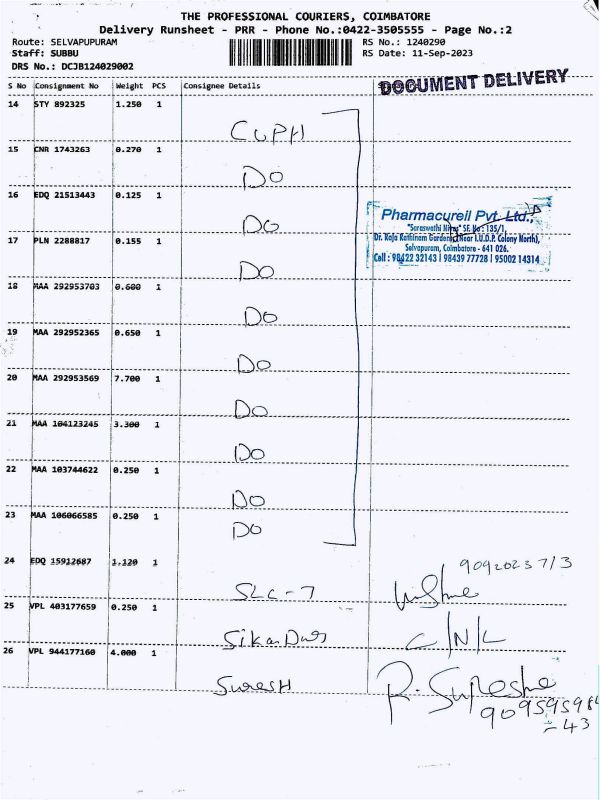 THE PROFESSIONAL COURIERS, COIMBATORE
Delivery Runsheet - PRR - Phone No.:0422-3505555 - Page No.:2
Route: SELVAPUPURAM RS No.: 1240290
Staff: SUBBU RS Date: 11-Sep-2023
DRS No.: DCJB124029002
DOCUMENT DELIVERY
S No Consignment No Weight PCS Consignee Details
14 STY 892325 1.250 1
CUPH
15 CNR 1743263 0.270 1
DO
16 EDQ 21513443 0.125 1
DO
Pharmacureil Pvt. Ltd.,
"Saraswathi Nivas" SF. No : 135/1,
17 PLN 2288817 0.155 1
Dr. Raja Rathinam Gardens (Near I.U.D.P. Colony North),
Selvapuram, Coimbatore - 641 026.
Cell : 98422 32143 | 98439 77728 | 95002 14314
DO
18 MAA 292953703 0.600 1
DO
19 MAA 292952365 0.650 1
DO
20 MAA 292953569 7.700 1
DO
21 MAA 104123245 3.300 1
DO
22 MAA 103744622 0.250 1
DO
23 MAA 106066585 0.250 1
DO
24 EDQ 15912687 1.120 1
SLC-7
25 VPL 403177659 0.250 1
C/N/L
26 VPL 944177160 4.000 1
SURESH R. Sureshe